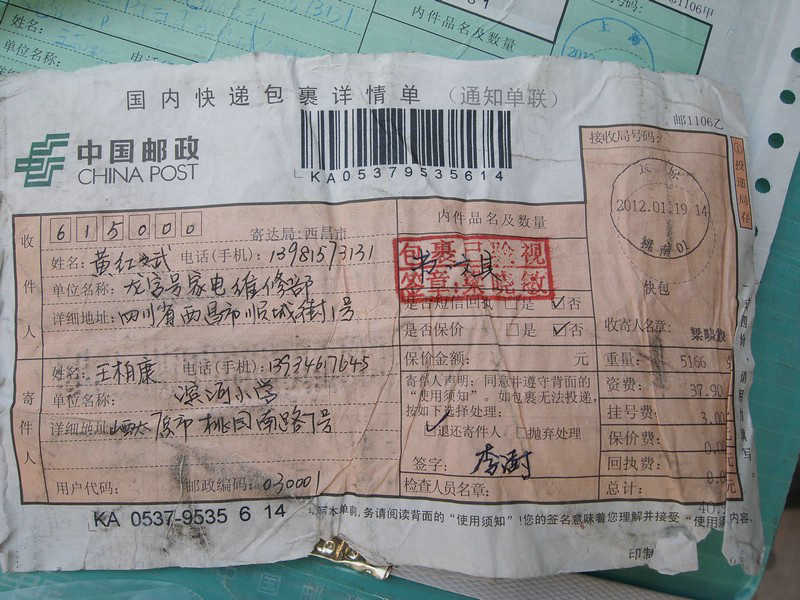 姓名:
单位名称:
内件品名及数量
邮1106甲
国内快递包裹详情单（通知单联）
邮1106乙
中国邮政
CHINA POST
KA05379535614
接收局号码:
收件人
615000
寄达局:西昌市
姓名: 电话(手机): 13981573131
单位名称: 家电维修部
详细地址: 四川省西昌市顺城街1号
内件品名及数量
包裹已验视
签章:
书 文具
是否短信回执 □是 ☑否
是否保价 □是 ☑否
保价金额: 元
2012.01.19 14
快包
收寄人名章:
重量: 5166
资费: 37.90元
挂号费: 3.00元
保价费:
回执费:
总计:
寄件人
姓名: 王柏康 电话(手机): 13934617645
单位名称: 滨河小学
详细地址: 山西太原市桃园南路7号
用户代码: 邮政编码: 030001
寄件人声明: 同意并遵守背面的
“使用须知”。如包裹无法投递,
按如下选择处理:
☑退还寄件人 □抛弃处理
签字:
检查人员名章:
KA 0537-9535 6 14
写本单前,务请阅读背面的“使用须知”!您的签名意味着您理解并接受“使用须知”内容.
印制